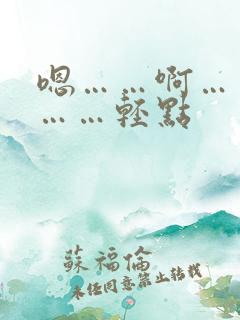 嗯……啊…
……輕點
蘇福倫
未經同意禁止轉載